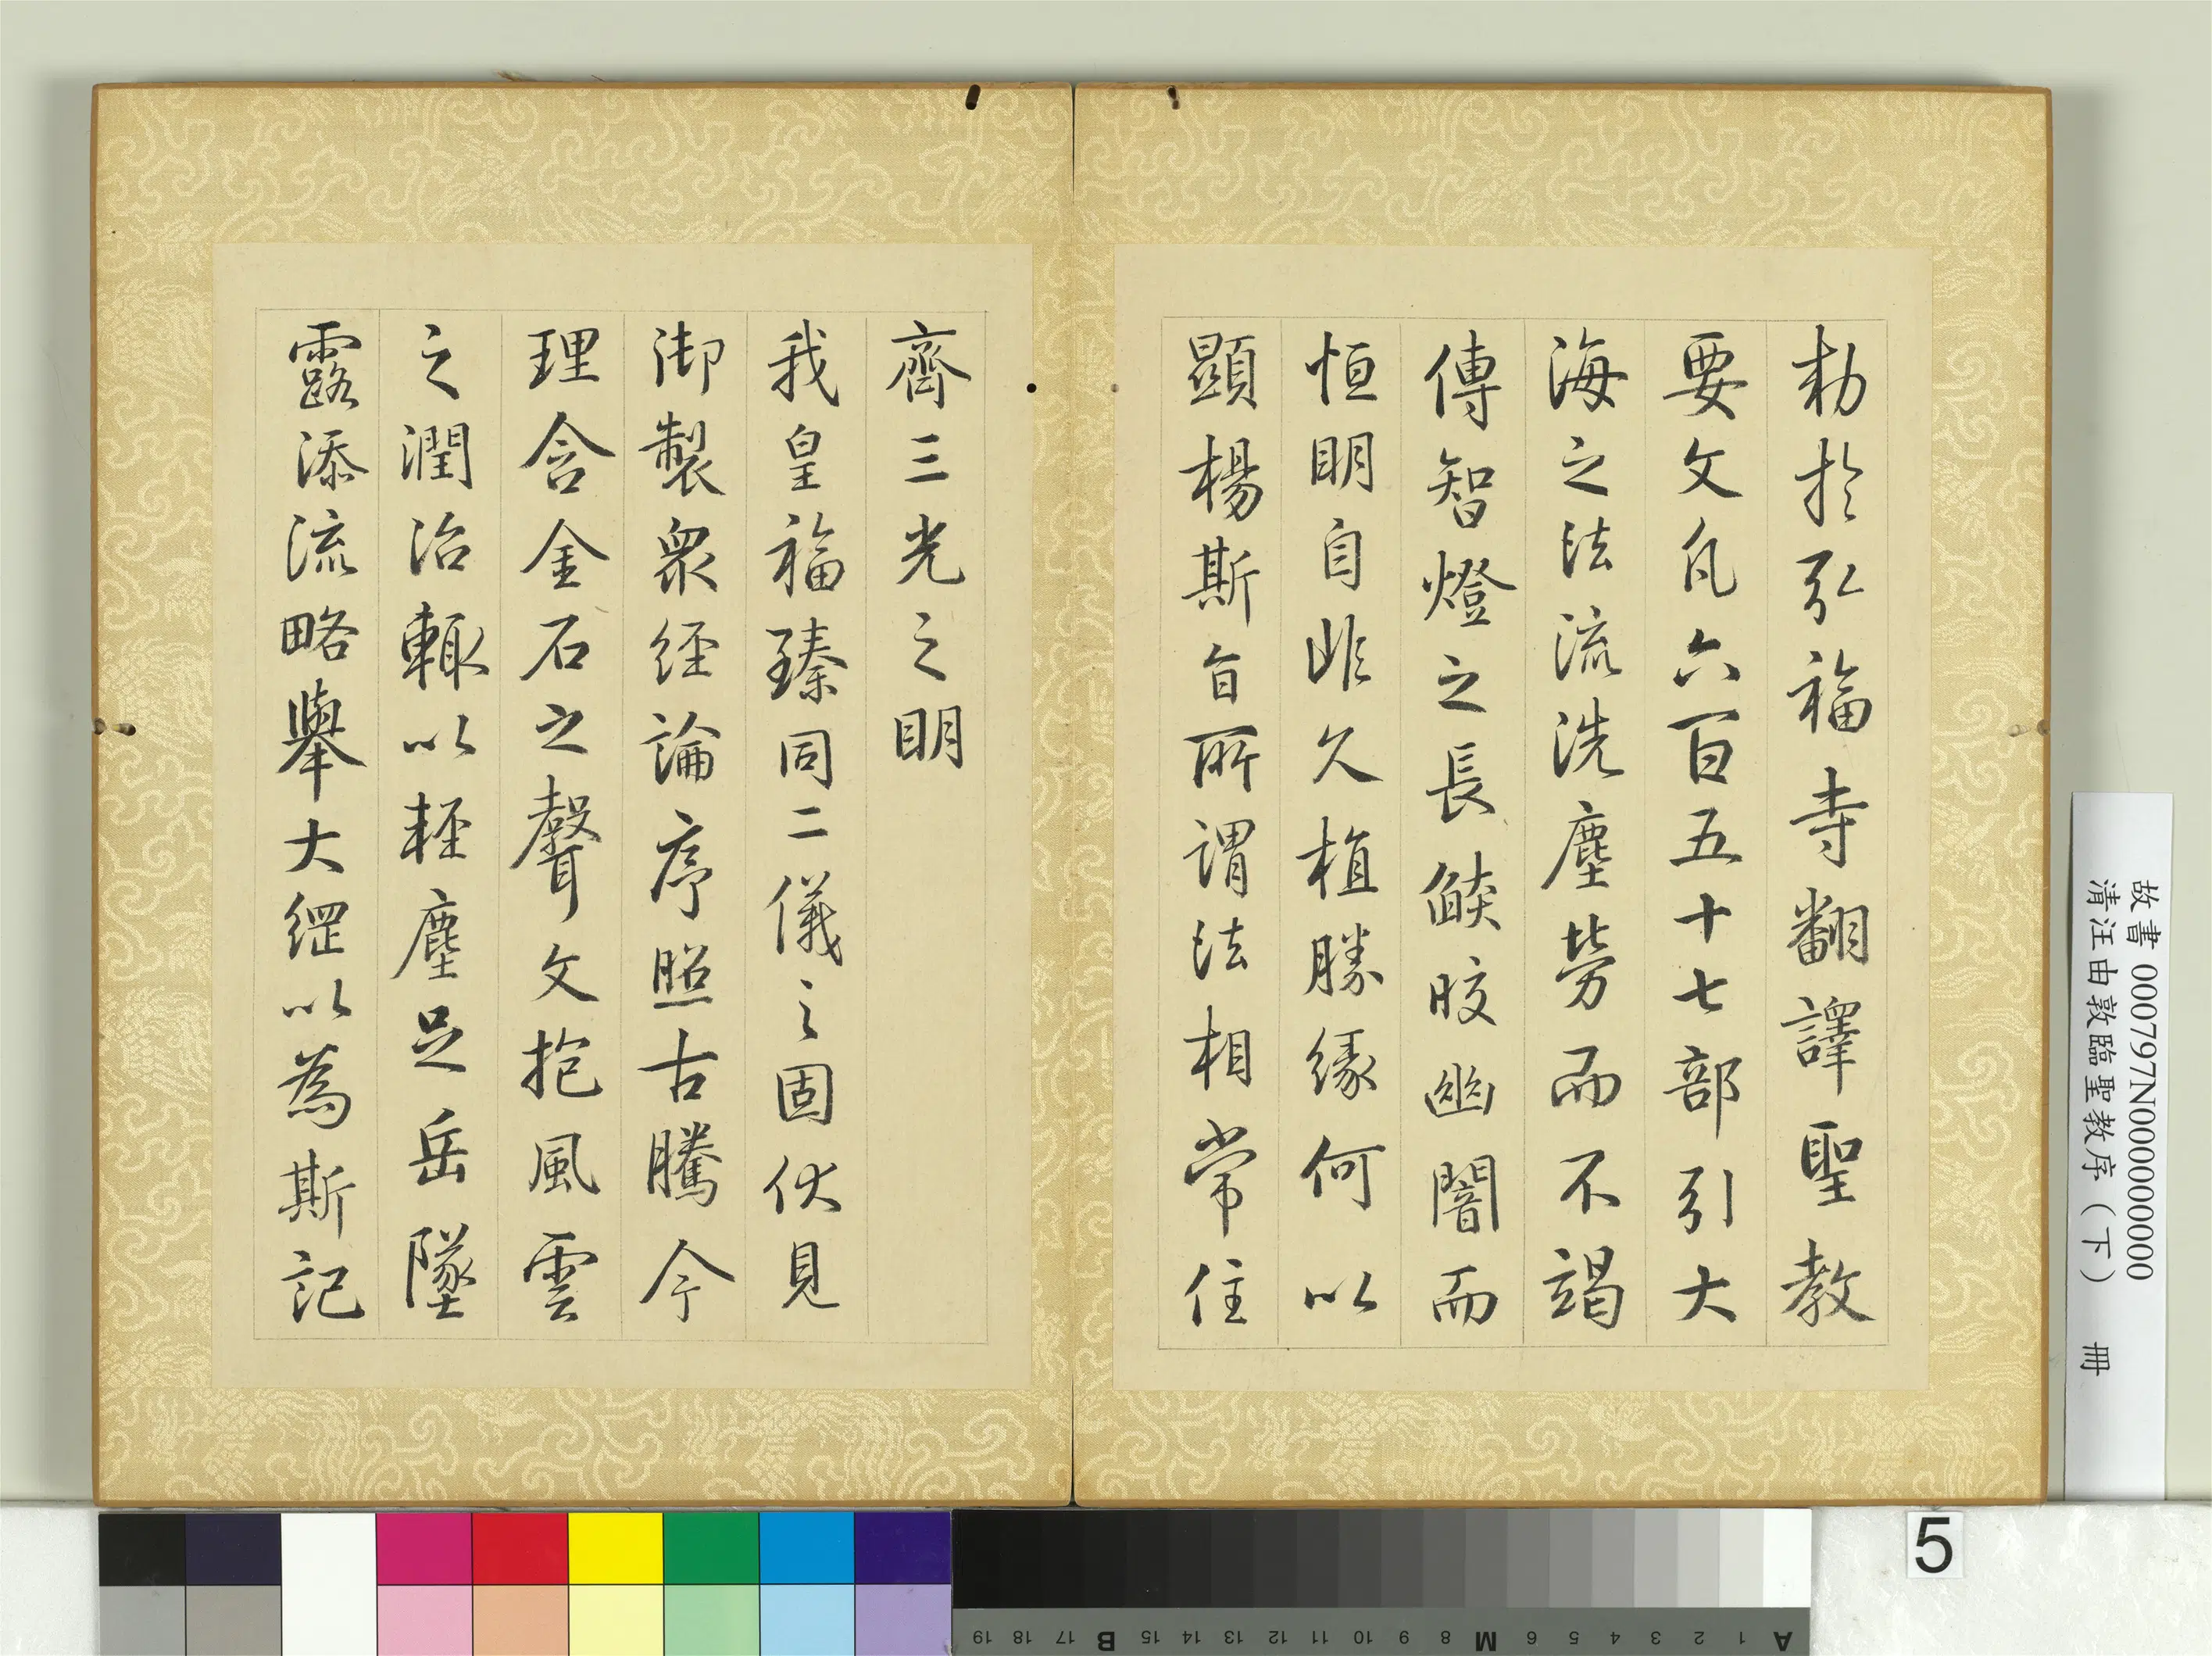 勑於弘福寺翻譯聖教
要文凡六百五十七部引大
海之法流洗塵勞而不竭
傳智燈之長燄皎幽闇而
恒明自非久植勝緣何以
顯楊斯旨所謂法相常住
齊三光之明
我皇福臻同二儀之固伏見
御製眾經論序照古騰今
理含金石之聲文抱風雲
之潤治輙以輕塵足岳墜
露添流略舉大綱以為斯記
故書 000797N000000000
清汪由敦臨聖教序（下） 冊
5
A 1 2 3 4 5 6 M 8 9 10 11 12 13 14 15 B 17 18 19